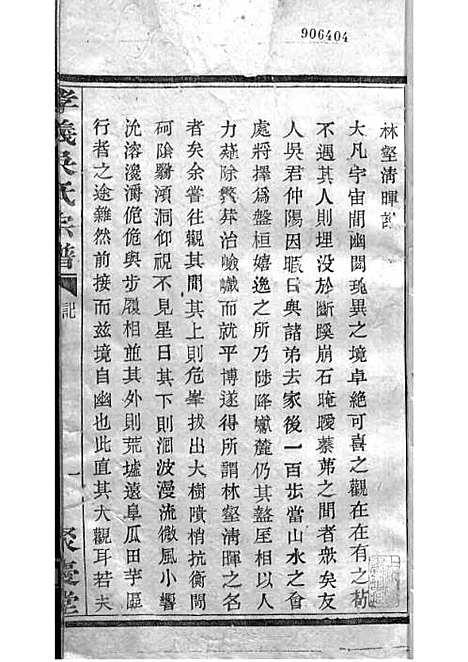 906404
林壑清暉記
大凡宇宙間幽閟瑰異之境卓絶可喜之觀在在有之苟
不遇其人則埋没於斷蹊崩石晻曖蓁茀之間者衆矣友
人吳君仲陽因暇日與諸弟去家後一百步當山水之會
處將擇爲盤桓嬉逸之所乃陟降巘麓仍其盩㞐相以人
力薙除繁莽治嶮巇而就平博遂得所謂林壑清暉之勝
者矣余嘗往觀其上則危峯拔出大樹隫梢抗衡問
砢陰翳澒洞仰祝不見星日其下則洄波漫流微風小響
沇溶瀺灂佹佹與步履相並其外則荒墟遠阜瓜田芋區
行者之途雜然前接而兹境自幽也此直其大觀耳若夫
孝義吳氏宗譜
記
一
聚慶堂